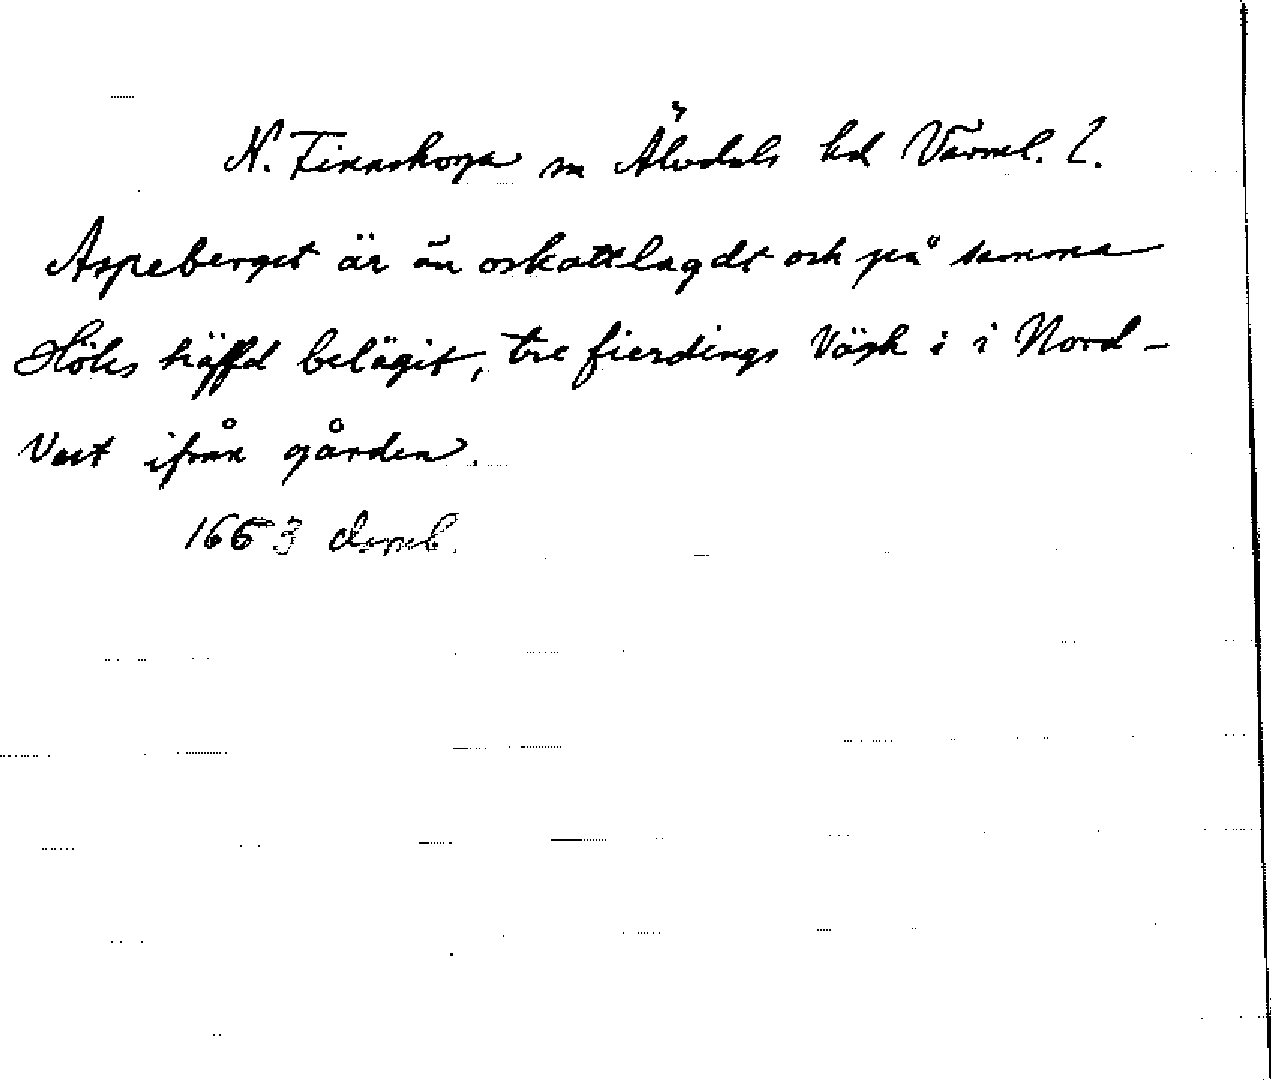 N. Finnskoga sn Älvdals hd Värml. l.
Aspeberget är än oskattlagdt och på samma
Höles häffd belägit, tre fierdings Vägh i i Nord-
Vest ifrån gården.
1663